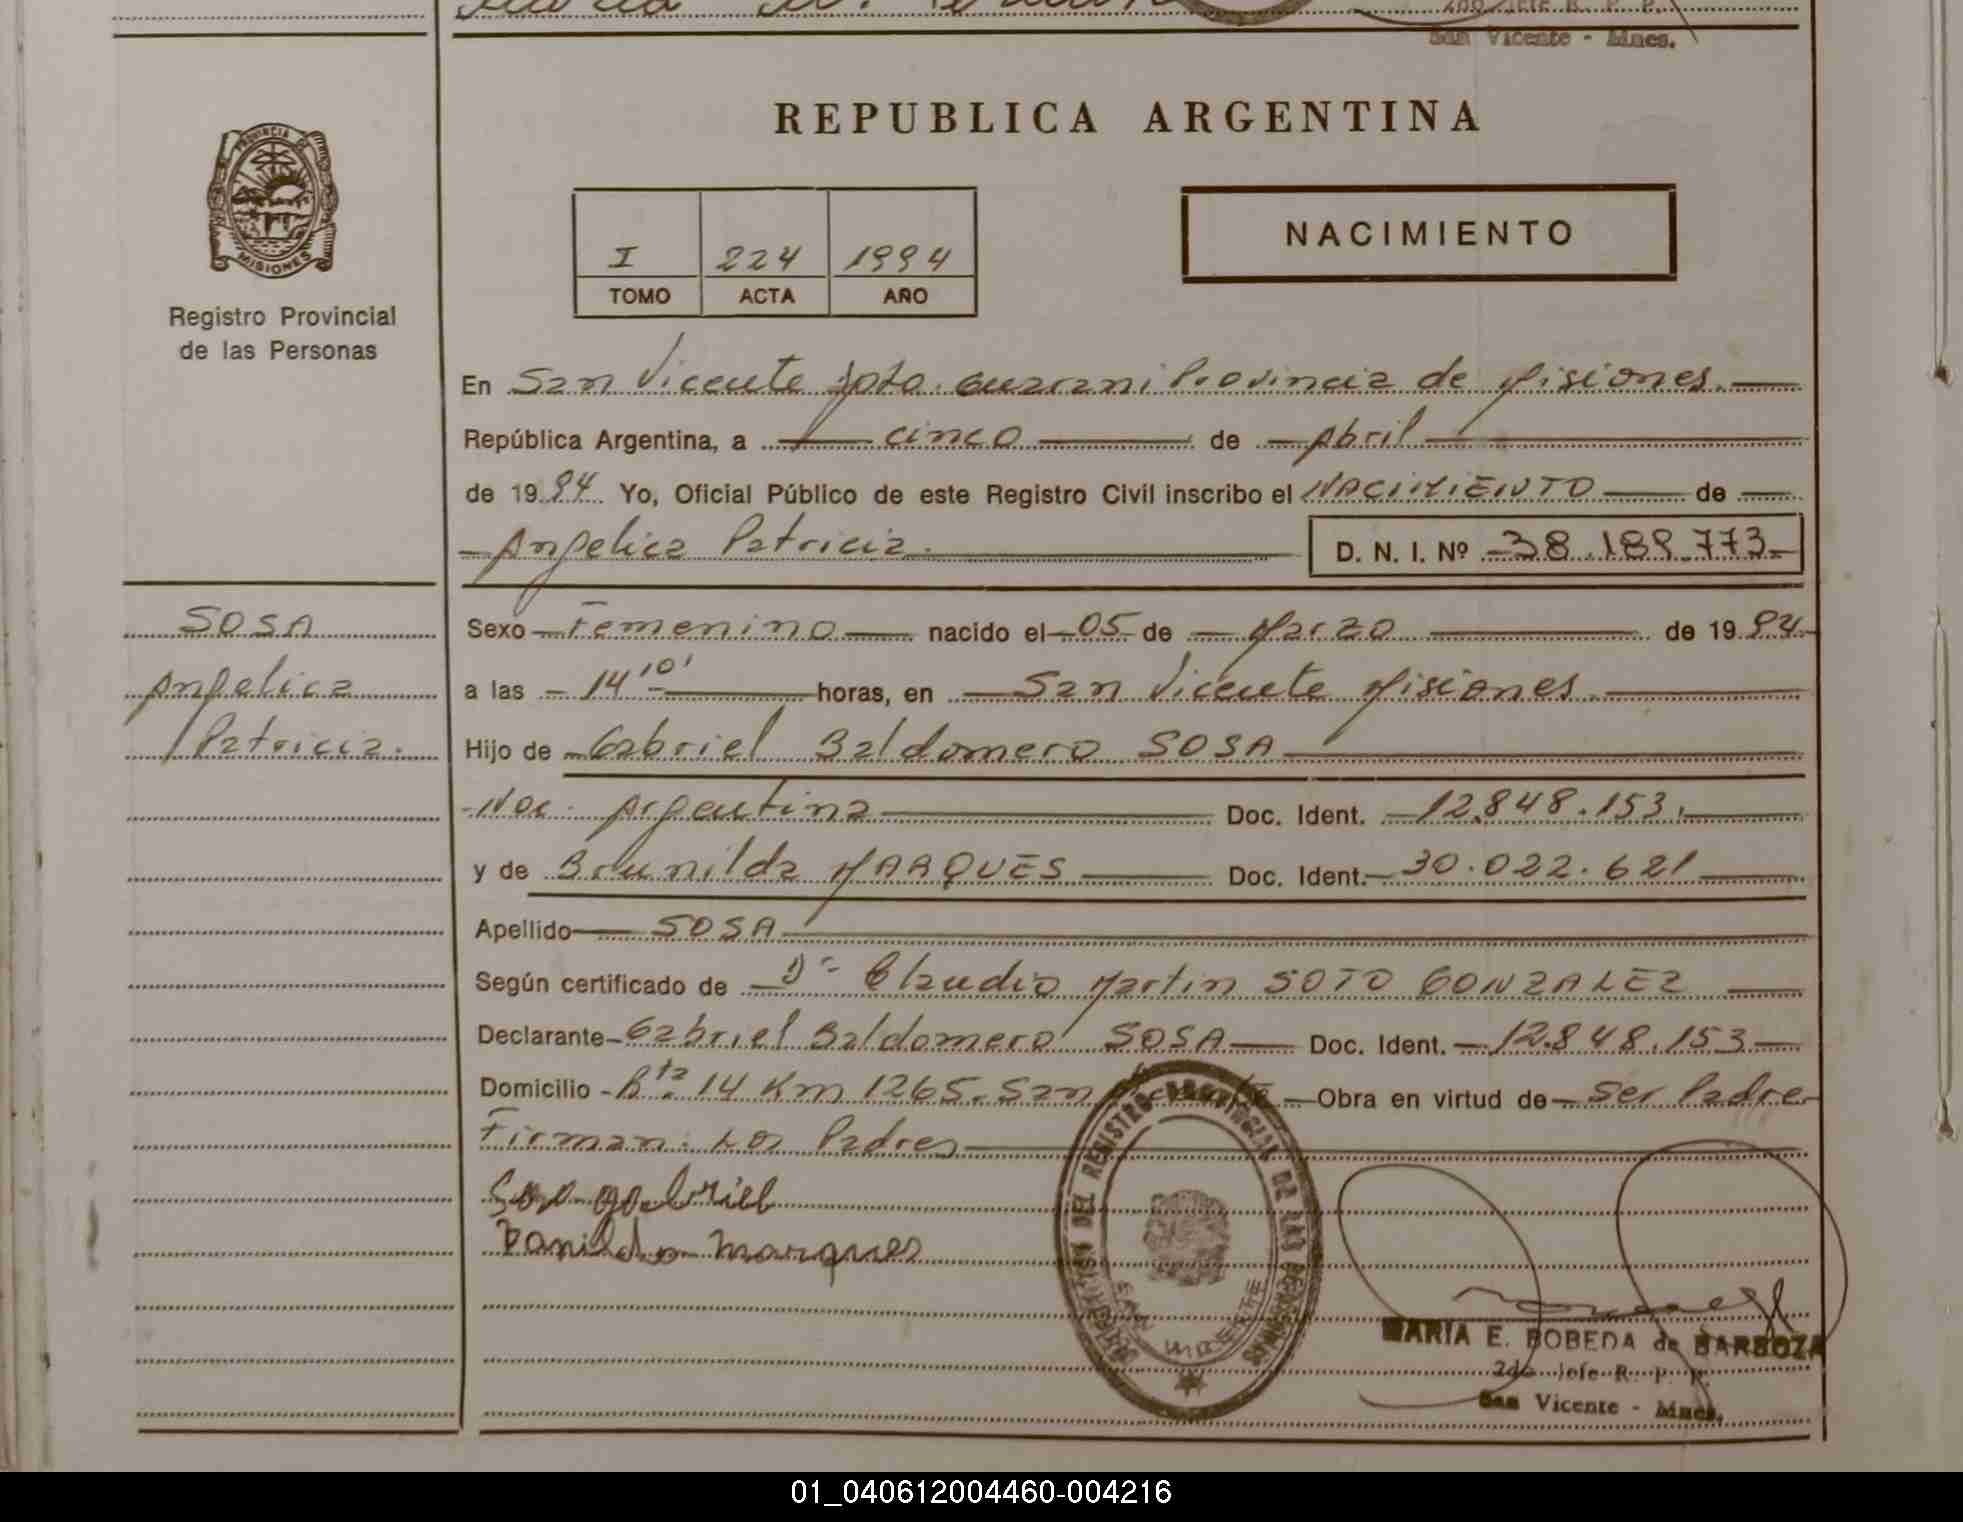 2do Jefe R. P. P.
San Vicente - Mnes.
REPUBLICA ARGENTINA
PROVINCIA DE
MISIONES
Registro Provincial
de las Personas
I 224 1994
TOMO ACTA AÑO
NACIMIENTO
En San Vicente Dpto. Guarani Provincia de Misiones.
República Argentina, a cinco de Abril
de 1994 Yo, Oficial Público de este Registro Civil inscribo el NACIMIENTO de
Angelica Patricia.
D. N. I. Nº 38.189.773
SOSA
Angelica
Patricia.
Sexo Femenino nacido el 05 de Marzo de 1994
a las 14 10' horas, en San Vicente Misiones.
Hijo de Gabriel Baldomero SOSA
Nac. Argentina Doc. Ident. 12.848.153.
y de Brunilda MARQUES Doc. Ident. 30.022.621
Apellido SOSA
Según certificado de Dr. Claudio Martin SOTO GONZALEZ
Declarante Gabriel Baldomero SOSA Doc. Ident. 12.848.153
Domicilio Rta. 14 Km 1265. San Vicente Obra en virtud de Ser Padre
Firman: Los Padres
Sosa gabriel
marques
DEL REGISTRO PROVINCIAL DE LAS PERSONAS
SAN VICENTE
MARIA E. BOBEDA de BARBOZA
2do Jefe R. P. P.
San Vicente - Mnes.
01_040612004460-004216